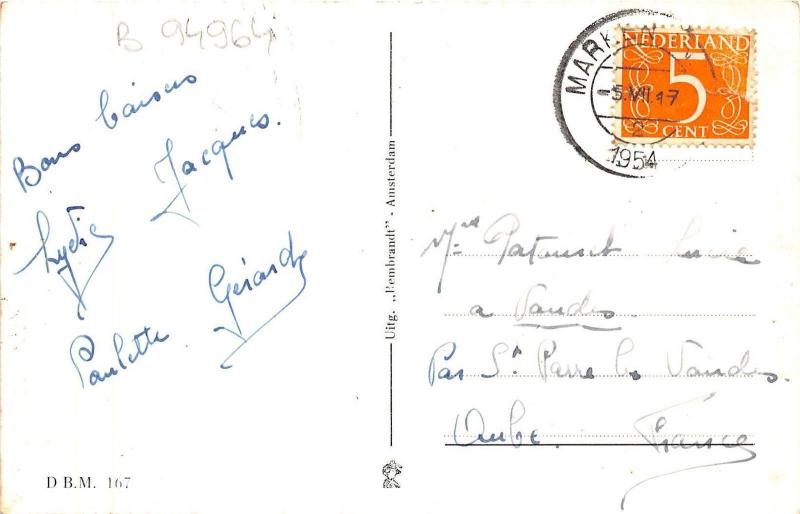 B 94964
Bons baisers
Jacques.
Lydie
Gérard
Paulette
D B.M. 167
Uitg. „Rembrandt" - Amsterdam
MARKEN
-5.VII.17
2
1954
NEDERLAND
5
CENT
Mlle Lucie
a Vaudes.
Par St Parre les Vaudes.
Aube. France